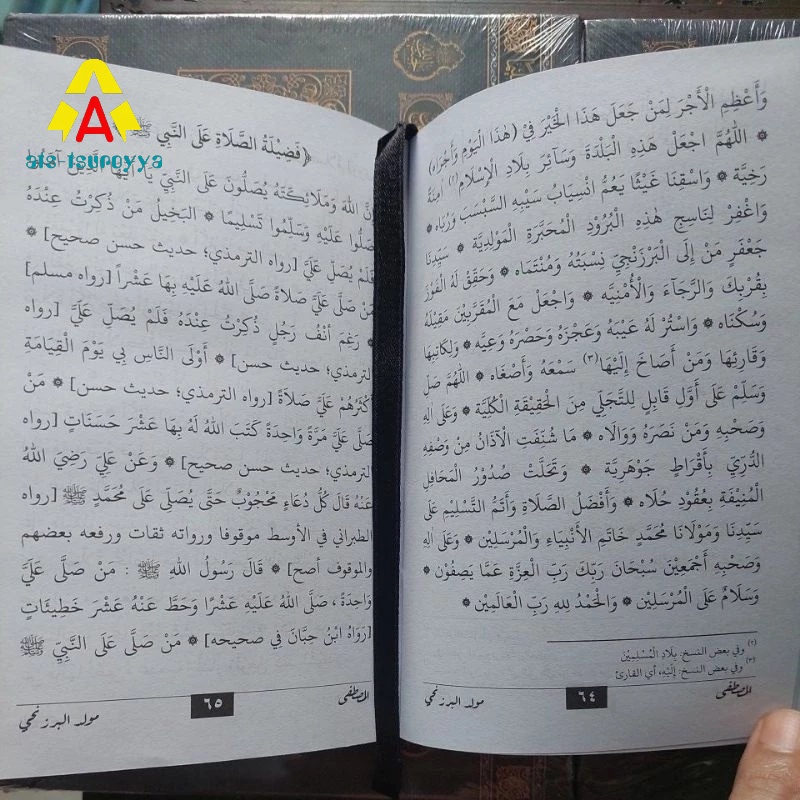 وَأَعْظِمِ الْأَجْرَ لِمَنْ جَعَلَ هَذَا الْخَيْرَ فِي (هٰذَا الْيَوْمِ وَأَجْرَاهُ)
۞ اللّٰهُمَّ اجْعَلْ هَذِهِ الْبَلْدَةَ وَسَآئِرَ بِلَادِ الْإِسْلَامِ(٢) آمِنَةً
رَخِيَّة ۞ وَاسْقِنَا غَيْثًا يَعُمُّ انْسِيَابُ سَيْبِهِ السَّبْسَبَ وَرُبَاه ۞
وَاغْفِرْ لِنَاسِجِ هٰذِهِ الْبُرُودِ الْمُحَبَّرَةِ الْمَوْلِدِيَّة ۞ سَيِّدِنَا
جَعْفَرٍ مَنْ إِلَى الْبَرْزَنْجِيِّ نِسْبَتُهُ وَمُنْتَمَاه ۞ وَحَقِّقْ لَهُ الْفَوْزَ
بِقُرْبِكَ وَالرَّجَآءَ وَالْأُمْنِيَّه ۞ وَاجْعَلْ مَعَ الْمُقَرَّبِيْنَ مَقِيْلَهُ
وَسُكْنَاه ۞ وَاسْتُرْ لَهُ عَيْبَهُ وَعَجْزَهُ وَحَصْرَهُ وَعِيَّه ۞ وَلِكَاتِبِهَا
وَقَارِئِهَا وَمَنْ أَصَاخَ إِلَيْهَا(٣) سَمْعَهُ وَأَصْغَاه ۞ اللّٰهُمَّ صَلِّ
وَسَلِّمْ عَلَى أَوَّلِ قَابِلٍ لِلتَّجَلِّي مِنَ الْحَقِيْقَةِ الْكُلِّيَّة ۞ وَعَلَى آلِهِ
وَصَحْبِهِ وَمَنْ نَصَرَهُ وَوَالَاه ۞ مَا شُنِّفَتِ الْآذَانُ مِنْ وَصْفِهِ
الدُّرِّيِّ بِأَقْرَاطٍ جَوْهَرِيَّة ۞ وَتَحَلَّتْ صُدُوْرُ الْمَحَافِلِ
الْمُنِيْفَةِ بِعُقُوْدِ حُلَاه ۞ وَأَفْضَلُ الصَّلَاةِ وَأَتَمُّ التَّسْلِيْمِ عَلَى
سَيِّدِنَا وَمَوْلَانَا مُحَمَّدٍ خَاتَمِ الْأَنْبِيَاءِ وَالْمُرْسَلِيْن ۞ وَعَلَى آلِهِ
وَصَحْبِهِ أَجْمَعِيْنَ سُبْحَانَ رَبِّكَ رَبِّ الْعِزَّةِ عَمَّا يَصِفُوْن ۞
وَسَلَامٌ عَلَى الْمُرْسَلِيْن ۞ وَالْحَمْدُ لِلهِ رَبِّ الْعَالَمِيْن ۞
(٢) وفي بعض النسخ: بِلَادِ الْمُسْلِمِيْنَ
(٣) وفي بعض النسخ: إِلَيْهِ، أي القارئ
المصطفى ٦٤ مولد البرزنجي
﴿فَضِيْلَةُ الصَّلَاةِ عَلَى النَّبِي ﷺ
إِنَّ اللهَ وَمَلَائِكَتَهُ يُصَلُّونَ عَلَى النَّبِيِّ يَا أَيُّهَا الَّذِيْنَ آمَنُوا
صَلُّوا عَلَيْهِ وَسَلِّمُوا تَسْلِيْمًا ۞ الْبَخِيْلُ مَنْ ذُكِرْتُ عِنْدَهُ
فَلَمْ يُصَلِّ عَلَيَّ [رواه الترمذي؛ حديث حسن صحيح] ۞
مَنْ صَلَّى عَلَيَّ صَلَاةً صَلَّى اللهُ عَلَيْهِ بِهَا عَشْراً [رواه مسلم]
۞ رَغِمَ أَنْفُ رَجُلٍ ذُكِرْتُ عِنْدَهُ فَلَمْ يُصَلِّ عَلَيَّ [رواه
الترمذي؛ حديث حسن] ۞ أَوْلَى النَّاسِ بِي يَوْمَ الْقِيَامَةِ
أَكْثَرُهُمْ عَلَيَّ صَلَاةً [رواه الترمذي؛ حديث حسن] ۞ مَنْ
صَلَّى عَلَيَّ مَرَّةً وَاحِدَةً كَتَبَ اللهُ لَهُ بِهَا عَشْرَ حَسَنَاتٍ [رواه
الترمذي؛ حديث حسن صحيح] ۞ وَعَنْ عَلِيٍّ رَضِيَ اللهُ
عَنْهُ قَالَ كُلُّ دُعَاءٍ مَحْجُوْبٌ حَتَّى يُصَلَّى عَلَى مُحَمَّدٍ ﷺ [رواه
الطبراني في الأوسط موقوفا ورواته ثقات ورفعه بعضهم
والموقوف أصح] ۞ قَالَ رَسُولُ اللهِ ﷺ : مَنْ صَلَّى عَلَيَّ
وَاحِدَةً ، صَلَّى اللهُ عَلَيْهِ عَشْرًا وَحَطَّ عَنْهُ عَشْرَ خَطِيْئَاتٍ
[رَوَاهُ ابْنُ حِبَّان فِي صحيحه] ۞ مَنْ صَلَّى عَلَى النَّبِيِّ ﷺ
المصطفى ٦٥ مولد البرزنجي
A
ats-tsuroyya